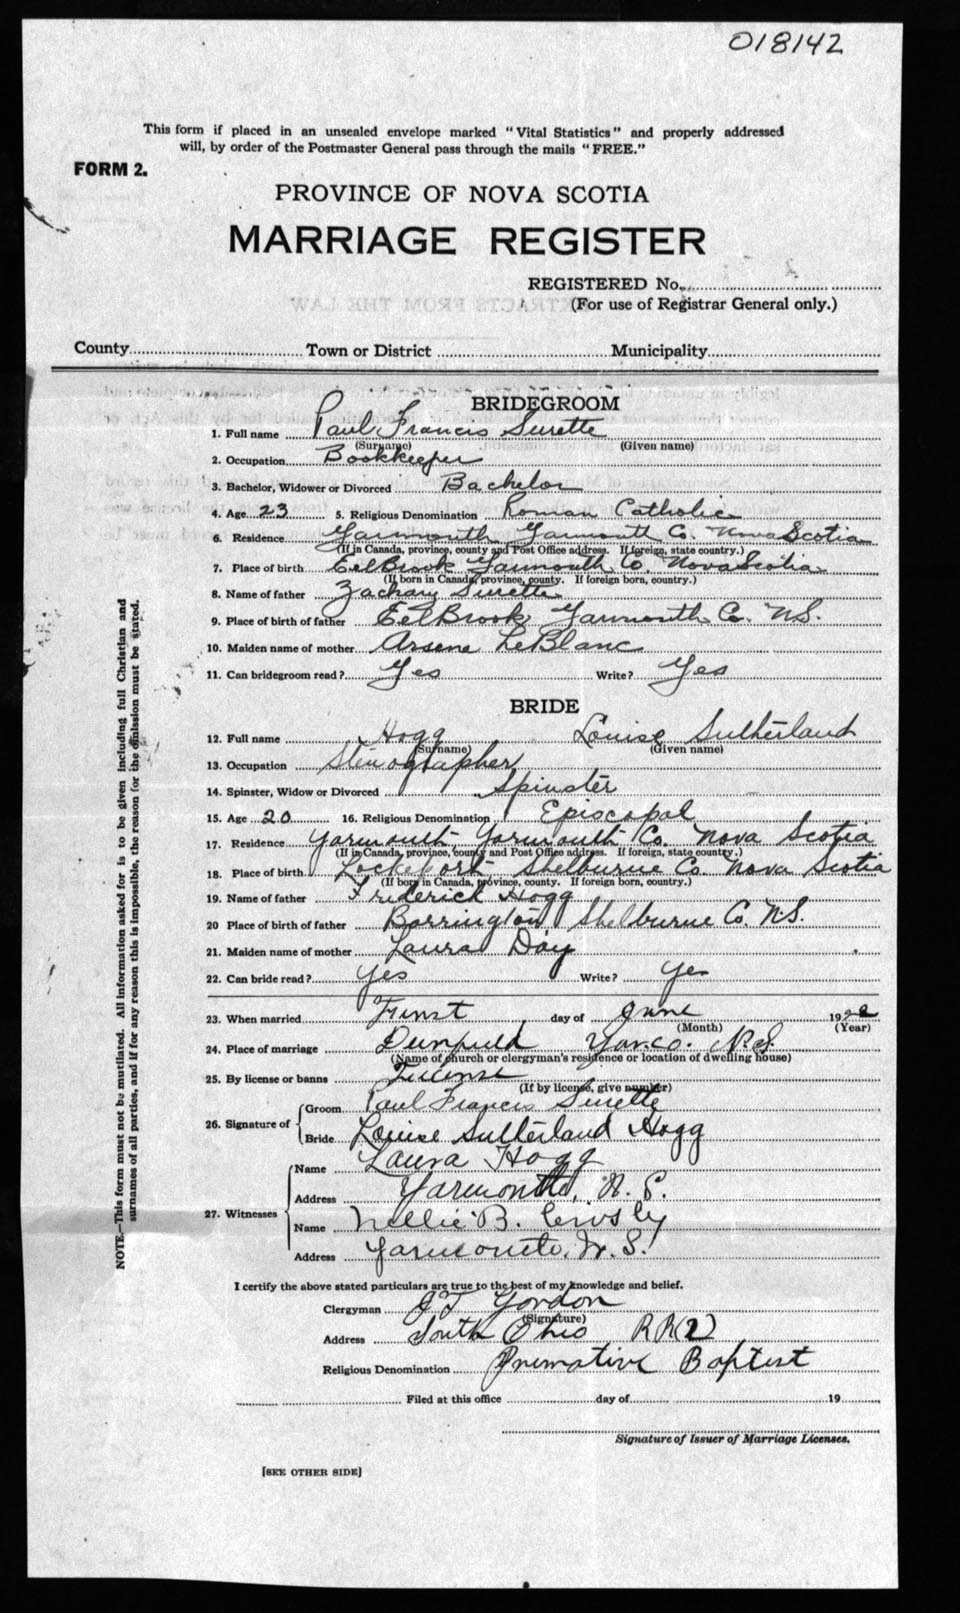 018142
This form if placed in an unsealed envelope marked "Vital Statistics" and properly addressed
will, by order of the Postmaster General pass through the mails "FREE."
FORM 2.
PROVINCE OF NOVA SCOTIA
MARRIAGE REGISTER
REGISTERED No.
(For use of Registrar General only.)
EXTRACTS FROM THE LAW
County Town or District Municipality
BRIDEGROOM
1. Full name Paul Francis Surette
(Surname) (Given name)
2. Occupation Bookkeeper
3. Bachelor, Widower or Divorced Bachelor
4. Age 23 5. Religious Denomination Roman Catholic
6. Residence Yarmouth Yarmouth Co. Nova Scotia
(If in Canada, province, county and Post Office address. If foreign, state country.)
7. Place of birth Eel Brook Yarmouth Co. Nova Scotia
(If born in Canada, province, county. If foreign born, country.)
8. Name of father Zachary Surette
9. Place of birth of father Eel Brook Yarmouth Co. N.S.
10. Maiden name of mother Arsene LeBlanc
11. Can bridegroom read? Yes Write? Yes
BRIDE
12. Full name Hogg Louise Sutherland
(Surname) (Given name)
13. Occupation Stenographer
14. Spinster, Widow or Divorced Spinster
15. Age 20 16. Religious Denomination Episcopal
17. Residence Yarmouth Yarmouth Co. Nova Scotia
(If in Canada, province, county and Post Office address. If foreign, state country.)
18. Place of birth Lockeport Shelburne Co. Nova Scotia
(If born in Canada, province, county. If foreign born, country.)
19. Name of father Frederick Hogg
20 Place of birth of father Barrington Shelburne Co. N.S.
21. Maiden name of mother Laura Day
22. Can bride read? Yes Write? Yes
23. When married First day of June 1922
(Month) (Year)
24. Place of marriage Yar. Co. N.S.
(Name of church or clergyman's residence or location of dwelling house)
25. By license or banns License
(If by license, give number)
26. Signature of Groom Paul Francis Surette
Bride Louise Sutherland Hogg
27. Witnesses Name Laura Hogg
Address Yarmouth, N. S.
Name Nellie B. Crosby
Address Yarmouth, N. S.
I certify the above stated particulars are true to the best of my knowledge and belief.
Clergyman J T Gordon
(Signature)
Address South Ohio R R (2)
Religious Denomination Primative Baptist
Filed at this office day of 19
Signature of Issuer of Marriage Licenses.
[SEE OTHER SIDE]
NOTE—This form must not be mutilated. All information asked for is to be given including full Christian and
surnames of all parties, and if for any reason this is impossible, the reason for the omission must be stated.